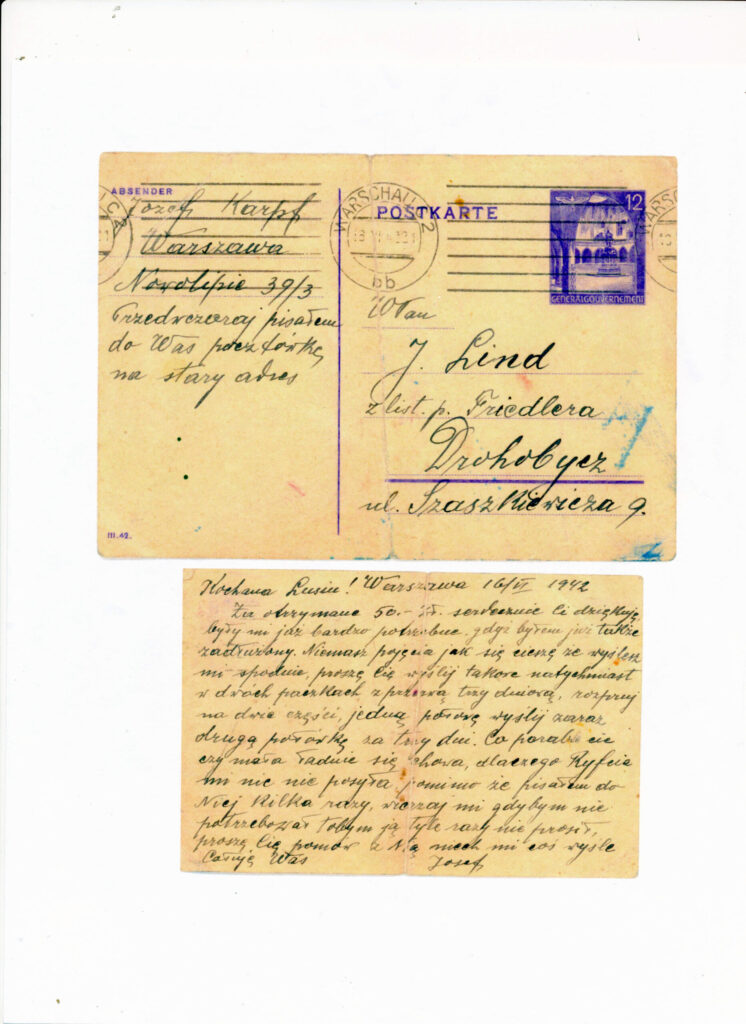 ABSENDER
Jozef Karpf
Warszawa
Nowolipie 39/3
Przedwczoraj pisałem
do Was pocztówkę
na stary adres
III.42.
WARSCHAU C2
bb
POSTKARTE
12
GENERALGOUVERNEMENT
WPan
J. Lind
z list. p. Friedlera
Drohobycz
ul. Szaszkiewicza 9.
Kochana Lusiu! Warszawa 16/VI 1942
Za otrzymane 50.- zł. serdecznie Ci dziękuję
były mi już bardzo potrzebne, gdyż byłem już także
zadłużony. Niemasz pojęcia jak się cieszę że wyślesz
mi spodnie, proszę Cię wyślij takowe natychmiast
w dwóch paczkach z przerwą trzy dniową, rozpruj
na dwie części, jedną połowę wyślij zaraz
drugą połówkę za trzy dni. Co porabiacie
czy mała ładnie się chowa, dlaczego Ryfcia
mi nic nie posyła pomimo że pisałem do
Niej kilka razy, wierzaj mi gdybym nie
potrzebował tobym ją tyle razy nie prosił,
proszę Cię pomów z Nią niech mi coś wyśle
Całuję Was Josef